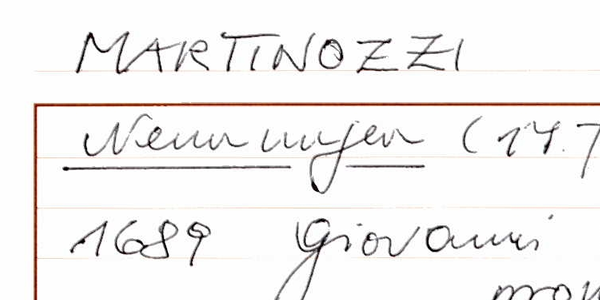 MARTINOZZI
Nennungen (17.
1689 Giovanni